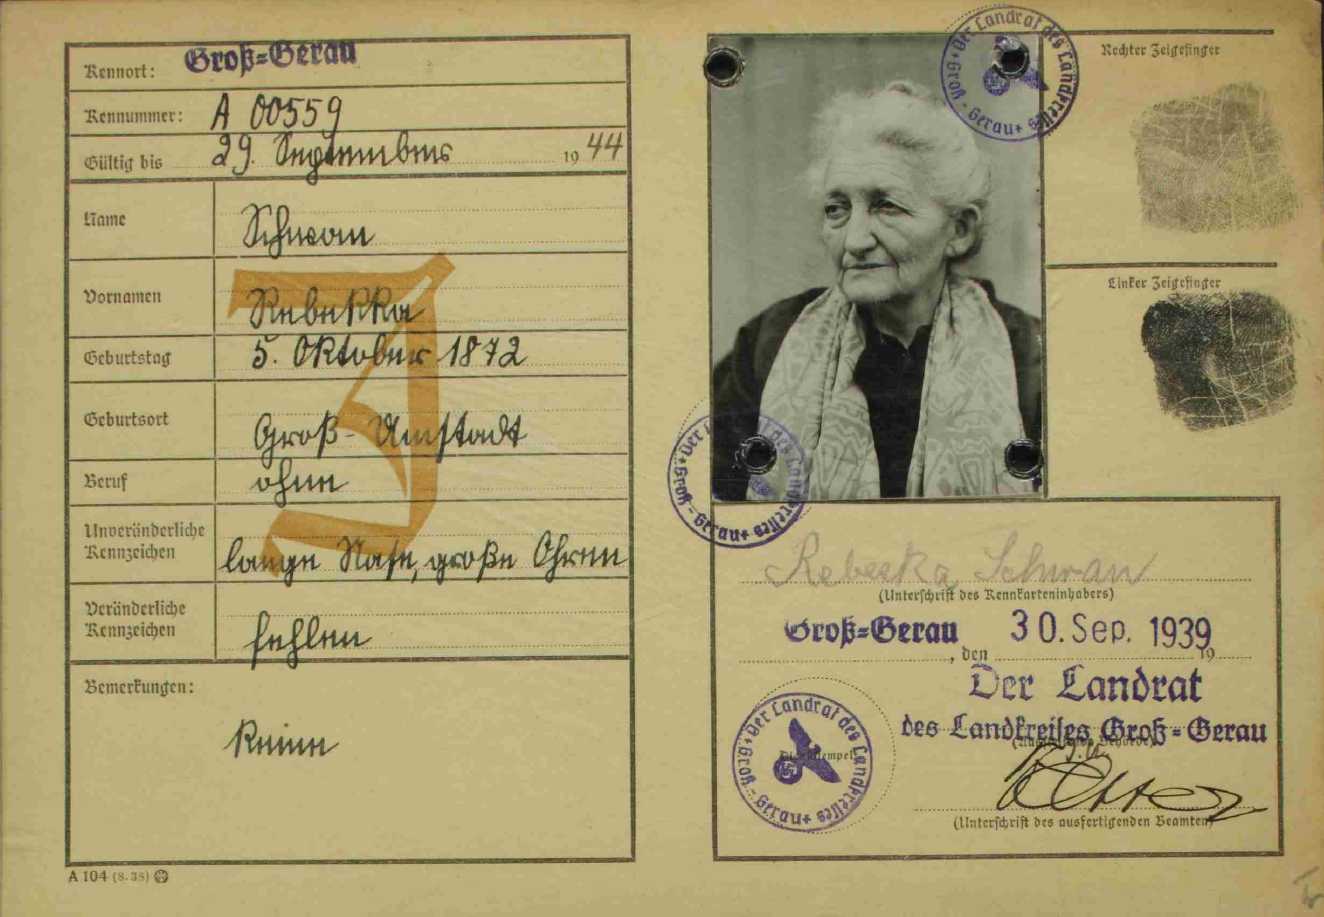 Kennort: Groß-Gerau
Kennummer: A 00559
Gültig bis 29. September 1944
Name Schwan
Vornamen Rebekka
Geburtstag 5. Oktober 1872
Geburtsort Groß-Umstadt
Beruf ohne
Unveränderliche
Kennzeichen lange Nase, große Ohren
Veränderliche
Kennzeichen fehlen
Bemerkungen:
Keine
J
A 104 (8. 38)
Der Landrat des Landkreises Groß-Gerau
Rechter Zeigefinger
Linker Zeigefinger
Der Landrat des Landkreises Groß-Gerau
Rebekka Schwan
(Unterschrift des Kennkarteninhabers)
Groß-Gerau, den 30. Sep. 1939 19
Der Landrat
des Landkreises Groß-Gerau
J.A.
Der Landrat des Landkreises Groß-Gerau
Dienststempel
(Unterschrift des ausfertigenden Beamten)